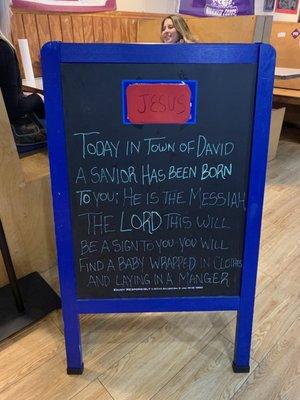 JESUS
TODAY IN TOWN OF DAVID
A SAVIOR HAS BEEN BORN
TO YOU; HE IS THE MESSIAH
THE LORD THIS WILL
BE A SIGN TO YOU YOU WILL
FIND A BABY WRAPPED IN CLOTHES
AND LAYING IN A MANGER